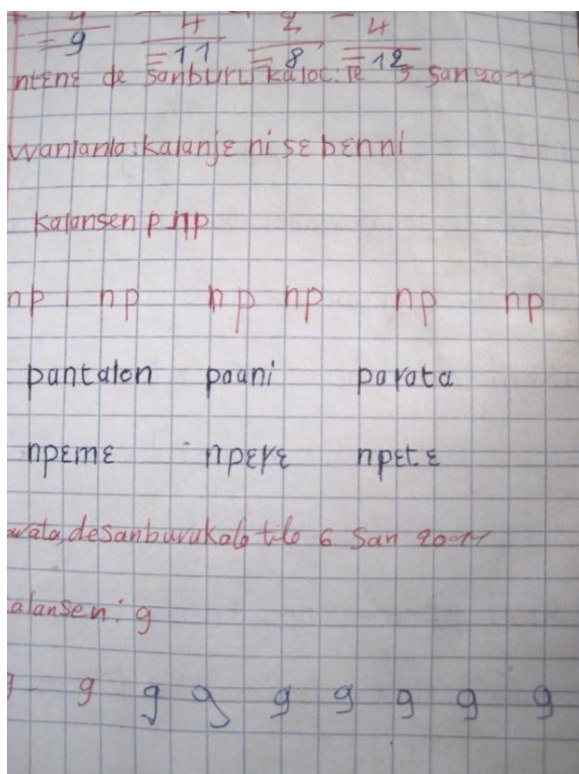 4 4 2 4
=9 =11 =8 =12
ntɛnɛ de sanburu kalo: te 5 san 2011
wanlanla: kalanjɛ ni sɛbɛnni
kalansen p np
np np np np np np
pantalon paani parata
npɛmɛ npɛrɛ npɛtɛ
wata, desanburukalo tilo 6 San 2011
alansen: g
g g g g g g g g g